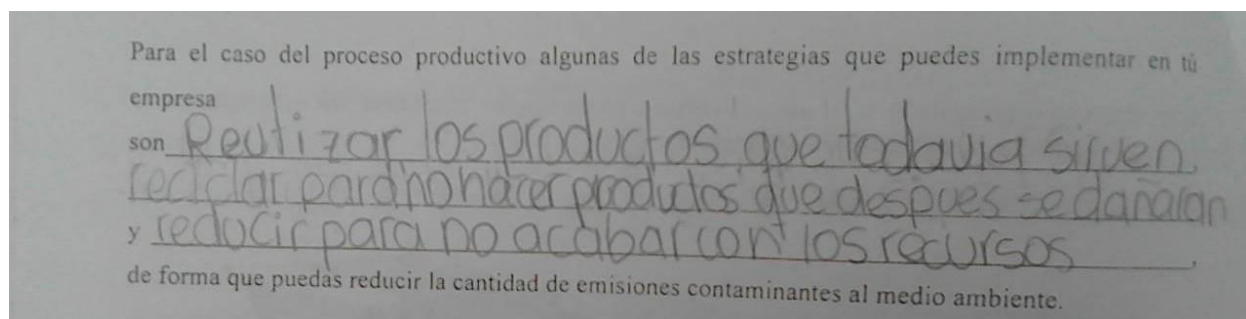 Para el caso del proceso productivo algunas de las estrategias que puedes implementar en tú
empresa
son Reutizar los productos que todavia sirven,
reciclar para no hacer productos que despues se dañaran
y reducir para no acabar con los recursos,
de forma que puedas reducir la cantidad de emisiones contaminantes al medio ambiente.